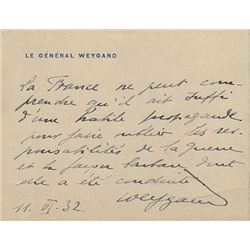 LE GÉNÉRAL WEYGAND
La France ne peut com-
prendre qu'il ait suffi
d'une habile propagande
pour faire oublier les res-
ponsabilités de la guerre
et la façon barbare dont
elle a été conduite
Weygand
11. VI. 32.